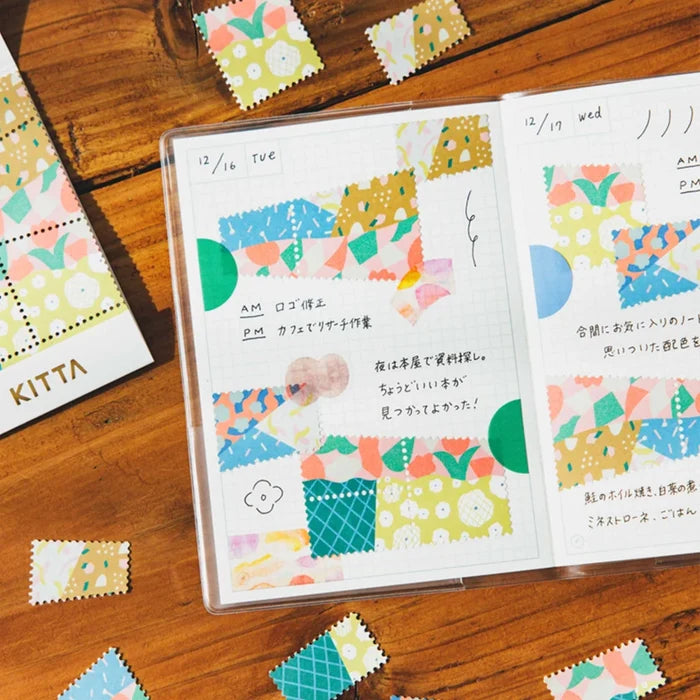 KITTA
12/16 Tue
AM ロゴ修正
PM カフェでリサーチ作業
夜は本屋で資料探し。
ちょうどいい本が
見つかってよかった!
12/17 Wed
AM
PM
合間にお気に入りのノート
思いついた配色を
鮭のホイル焼き、白菜の煮
ミネストローネ、ごはん